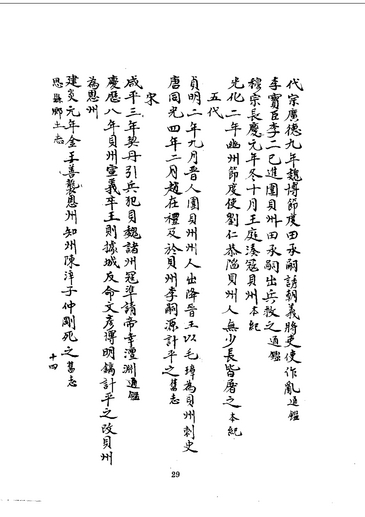 代宗廣德九年魏博節度田承嗣誘朝義將吏使作亂通鑑
李寶臣李二已進圍貝州田承嗣出兵救之通鑑
穆宗長慶元年冬十月王庭湊寇貝州本紀
光化二年幽州節度使劉仁恭陷貝州人無少長皆屠之本紀
五代
貞明二年九月晉人圍貝州州人出降晉王以毛璋為貝州刺史
唐同光四年二月趙在禮反於貝州李嗣源計平之舊志
宋
咸平三年契丹引兵犯貝魏諸州寇準請帝幸澶淵通鑑
慶歷八年貝州宣義卒王則據城反命文彥博明鎬計平之改貝州
為恩州
建炎元年金王善襲恩州知州陳淬子仲剛死之舊志
恩縣鄉土志 十四
29